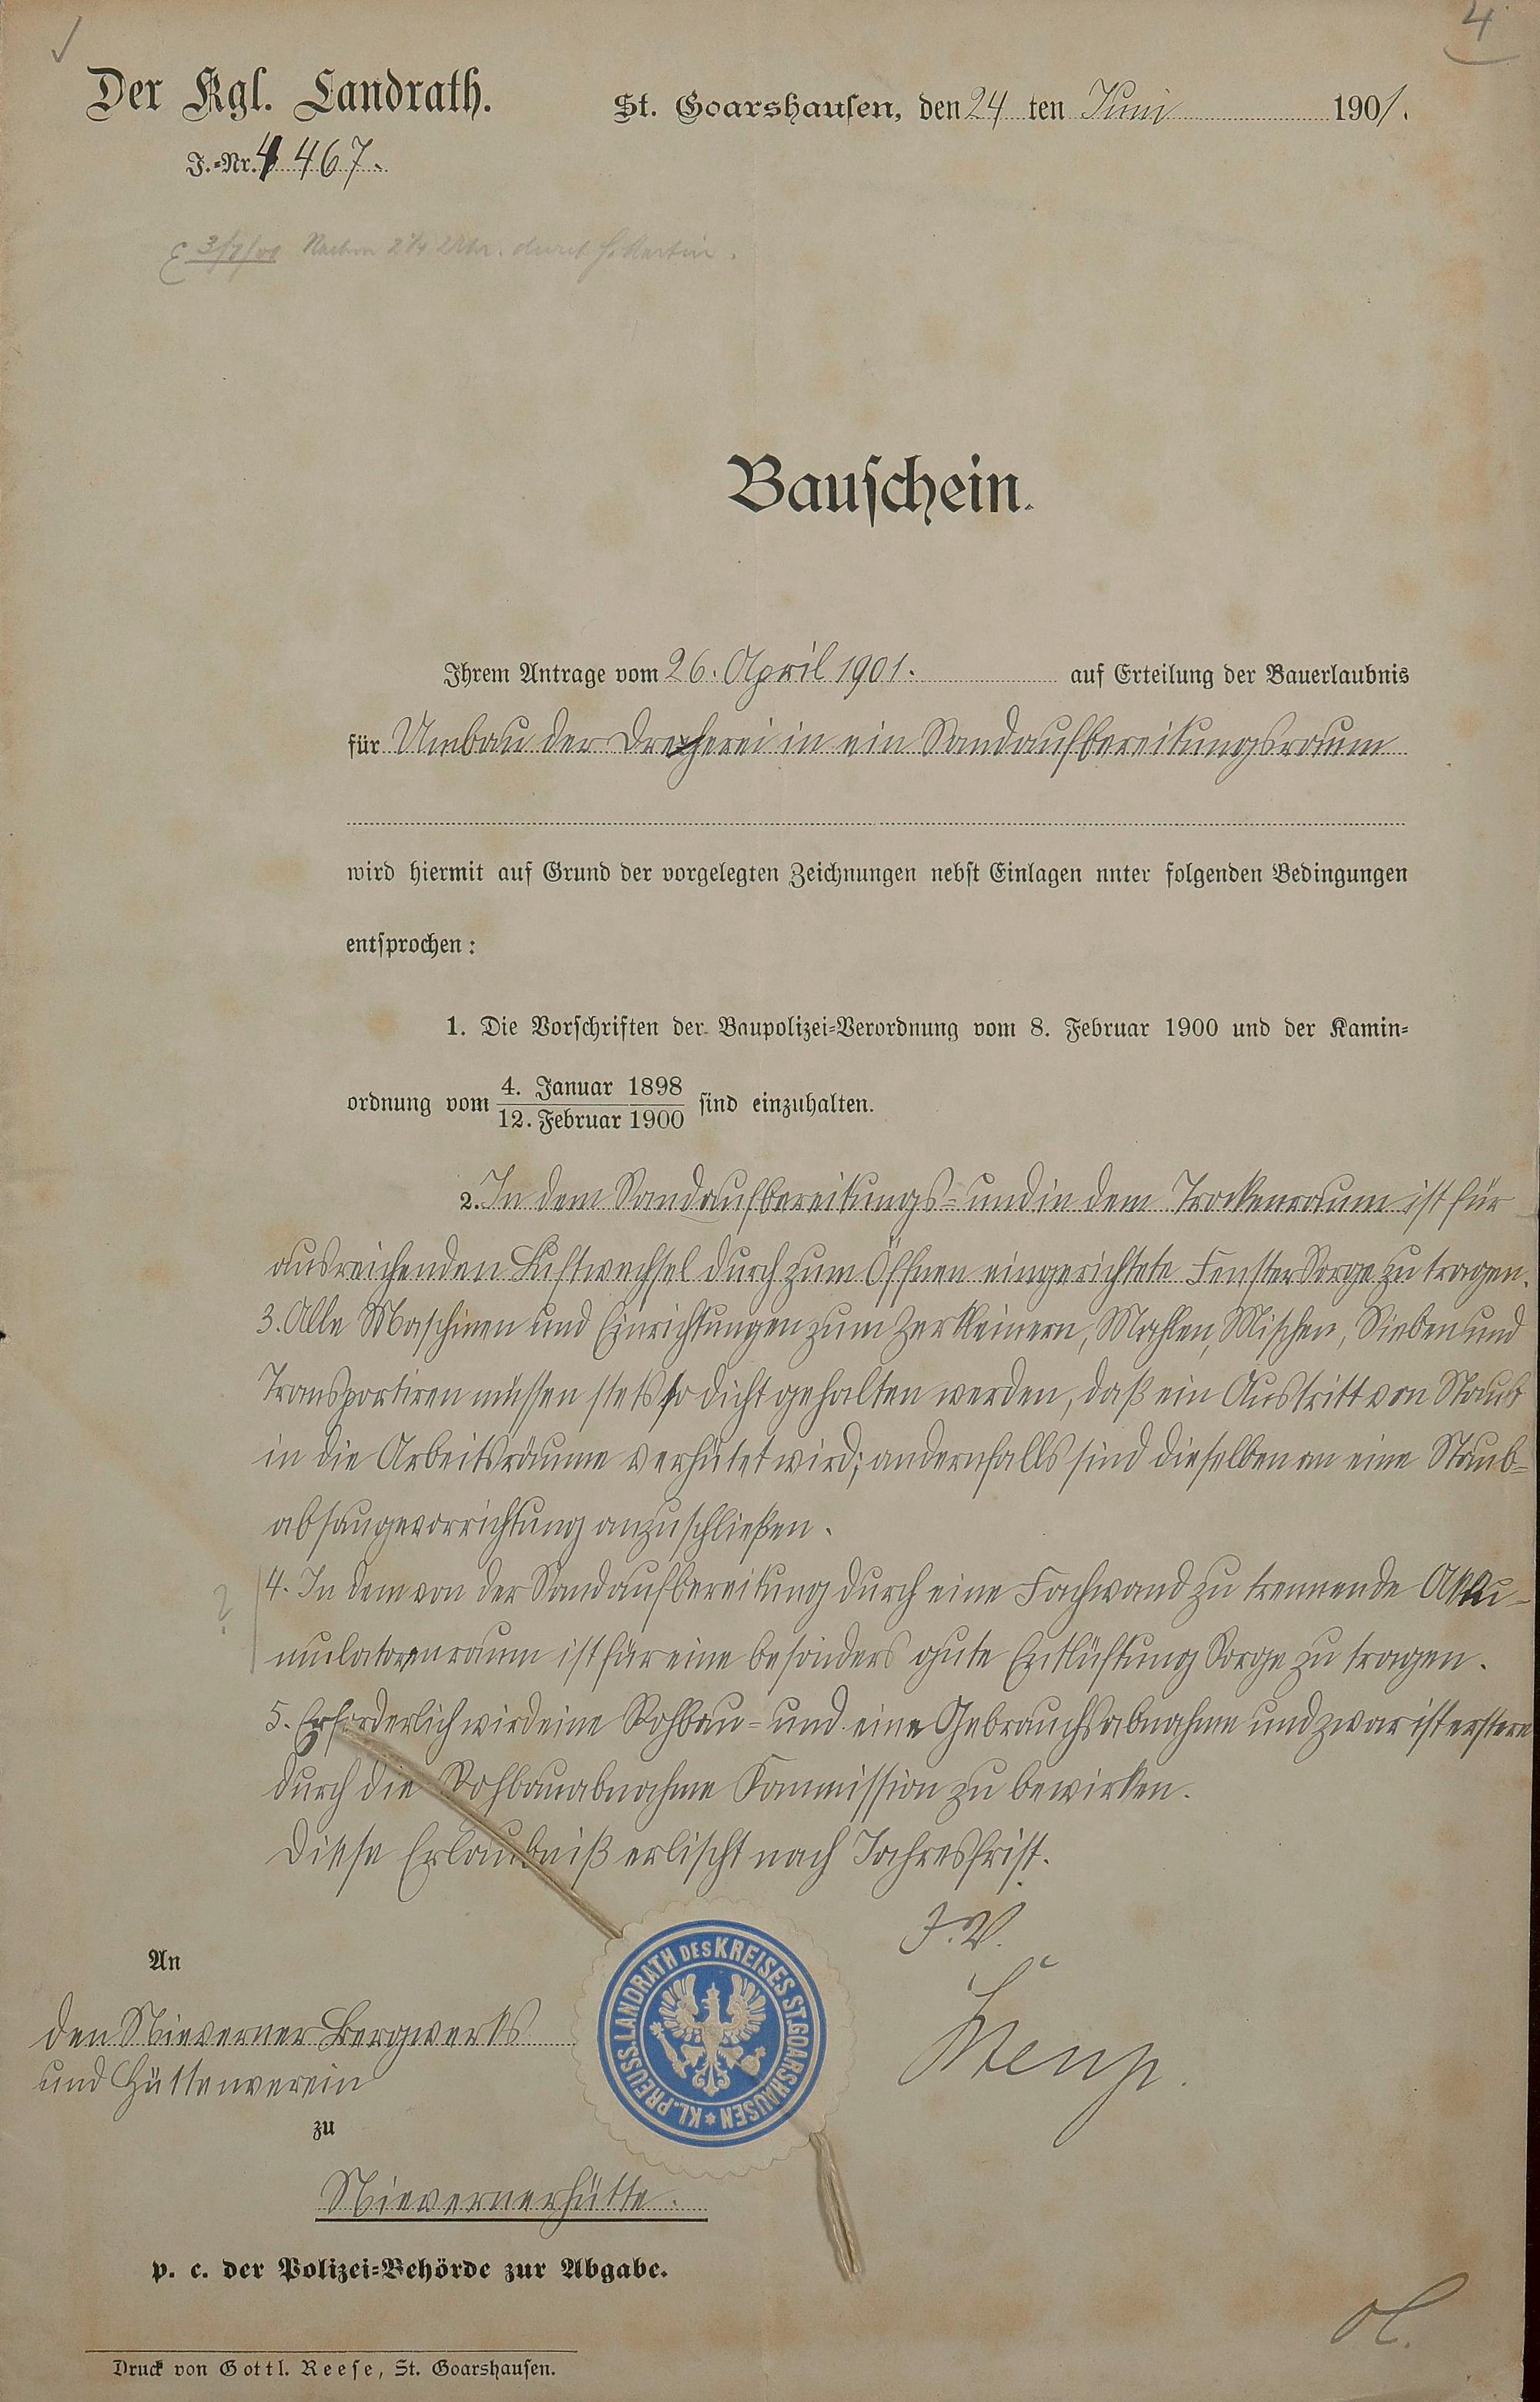 4
Der Kgl. Landrath.
St. Goarshausen, den 24 ten Juni 1901.
J.-Nr. 4467.
3/7/01 Nachm 2¼ Uhr. durch H. Martin.
Bauschein.
Ihrem Antrage vom 26. April 1901. auf Erteilung der Bauerlaubnis
für Umbau der Dreherei in ein Sandaufbereitungsraum
wird hiermit auf Grund der vorgelegten Zeichnungen nebst Einlagen nnter folgenden Bedingungen
entsprochen:
1. Die Vorschriften der Baupolizei-Verordnung vom 8. Februar 1900 und der Kamin-
ordnung vom 4. Januar 1898 / 12. Februar 1900 sind einzuhalten.
2. In dem Sandaufbereitungs- und in dem Trockenraum ist für
ausreichenden Luftwechsel durch zum Öffnen eingerichtete Fenster Sorge zu tragen.
3. Alle Maschinen und Einrichtungen zum Zerkleinern, Mahlen, Mischen, Sieben und
Transportiren müssen stets so dicht gehalten werden, daß ein Austritt von Staub
in die Arbeitsräume verhütet wird; andernfalls sind dieselben an eine Staub-
absaugevorrichtung anzuschließen.
? 4. In dem von der Sandaufbereitung durch eine Fachwand zu trennende Akku-
mulatorenraum ist für eine besonders gute Entlüftung Sorge zu tragen.
5. Erforderlich wird eine Rohbau- und eine Gebrauchsabnahme und zwar ist erstere
durch die Rohbauabnahme Kommission zu bewirken.
Diese Erlaubniß erlischt nach Jahresfrist.
J. V.
An
den Nieverner Bergwerks
und Hüttenverein
zu
Nievernerhütte.
KL. PREUSS. LANDRATH DES KREISES ST. GOARSHAUSEN
p. c. der Polizei-Behörde zur Abgabe.
Druck von Gottl. Reese, St. Goarshausen.